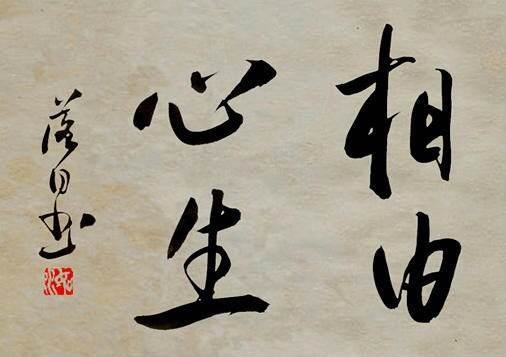 相由
心生
落日书